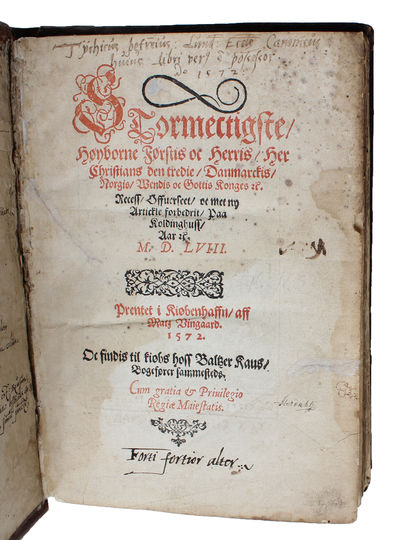 Tychicus petreius: Lund: Eccl: Canonicus
huius libri verus possessor
Ao 1572
STormectigste/
Høyborne Førstis oc Herris/ Her
Christians den tredie/ Danmarckis/
Norgis/ Wendis oc Gottis Konges etc.
Recess/ Offuerseet/ oc met ny
Artickle forbedrit/ Paa
Koldinghuss/
Aar etc.
M. D. LVIII.
Prentet i Kiøbenhaffn/ aff
Matz Vingaard.
1572.
Oc findis til kiøbs hoss Baltzer Kaus/
Bogefører sammesteds.
Cum gratia & Priuilegio
Regiæ Maiestatis.
Forti fortior alter